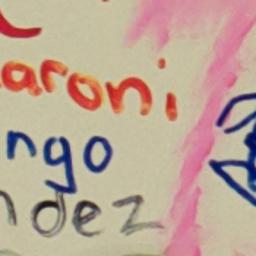 aroni
ngo
ndez